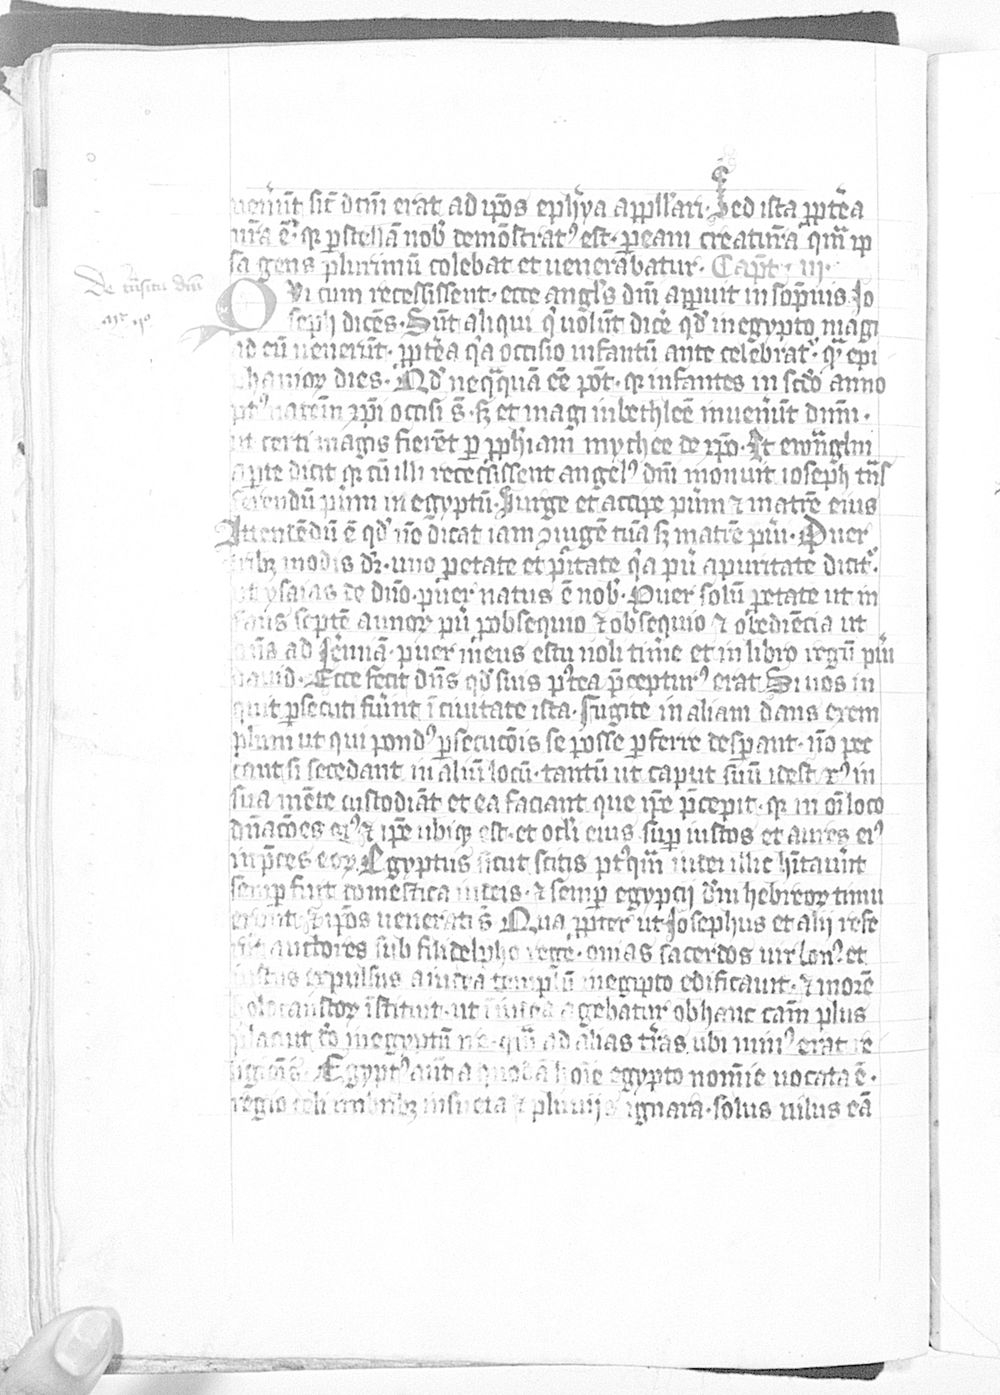 uenerūt sic̄ dctm̄ erat ad ip̄os eph̄ya appllari. Sed ista ꝓpt̄ea
mr̄a ē. qꝛ ꝑ stellā nob̄ demōstratꝰ est. ꝑ eam creaturā qm̄ ip
sa gens plurimū colebat et uenerabatur. Cap̄t. iii.
De trn̄situ dnī
QVi cum recessissent. ecce angl̄s dnī appuit in sōpnis Io
seph dicēs. Sūt aliqui q̄ uolūt dic̄e qd̓ in egypto magi
ad eū uenerūt. ꝓpt̄ea qͣa occisio infantū ante celebratᷣ. qᷓ epi
phanioꝝ dies. Qd̓ neqͣquā eē pōt. qꝛ infantes in scd̄o anno
pꝰ natem̄ xp̄i occisi s̄. sꝫ et magi in bethleē inuenerūt dnm̄.
ut certi magis fierēt ꝑ ꝓph̄iam mychee de xp̄o. It ewāglm̄
aꝑte dicit qꝛ cū illi rececissent angelꝰ dnī monuit ioseph tn̄s
ferendū pu̓m in egyptū. Surge et accipe pu̓m ⁊ matrē eius
Attendēdū ē qd̓ nō dicat iam ꝯiugē tuā sꝫ matrē pu̓i. Puer
tribꝫ modis dr̄. uno ꝑ etate et pu̓itate qͣa pu̓ a puritate dicitᷣ.
ut ysaias de dn̄o. puer natus ē nob̄. Puer solū ꝑ etate ut in
fans septē annoꝝ pu̓ ꝑ obsequio ⁊ obsequio ⁊ obediēcia ut
dn̄s ad Iermiā. puer meus es tu noli tim̄e et in libro regū pu̓i
dauid. Ecce fecit dn̄s qd̓ suis pꝰtea p̄cepturꝰ erat Si uos in
quit ꝑsecuti fūint ī ciuitate ista. fugite in aliam dans exem
plum ut qui pondꝰ ꝑsecucōis se posse ꝑferre desꝑant. nō pec
cant si secedant in aliū locū. tantū ut caput suū id est xꝰ in
sua mēte custodiāt et ea faciant que ip̄e p̄cepit. qꝛ in oī loco
dn̄acōes eiꝰ ⁊ ip̄e ubiqꝫ est. et ocl̄i eius sup iustos et aures eiꝰ
in p̄ces eoꝝ. Egyptus sicut scitis pꝰqm̄ iudei illic hītauūt
semꝑ fuit domestica iudeis. ⁊ semꝑ egyptij dm̄ hebreoꝝ timu
erunt. ⁊ ip̄os uenerati s̄. Qua ꝓpter ut Iosephus et alij refe
rūt auctores sub filidelpho rege. onias sacerdos uir bonꝰ et
iustus expulsus a iudea templū in egipto edificauit. ⁊ morē
holocaustoꝝ īstituit. ut ī iudea agebatur ob hanc cām plus
placuit dō in egyptū ire. qm̄ ad alias tr̄as ubi minꝰ erat re
ligiōis. Egyptꝰ aūt a quodā hoīe egypto nomīe uocata ē.
regio celi imbribꝫ insueta ⁊ pluuijs ignara. solus nilus eā